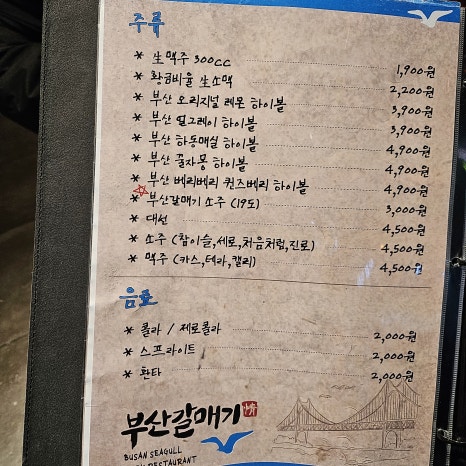 주류
* 生맥주 300cc 1,900원
* 황금비율 生소맥 2,200원
* 부산 오리지널 레몬 하이볼 3,900원
* 부산 얼그레이 하이볼 3,900원
* 부산 하동매실 하이볼 4,900원
* 부산 꿀자몽 하이볼 4,900원
* 부산 베리베리 퀸즈베리 하이볼 4,900원
* 부산갈매기 소주 (19도) 3,000원
* 대선 4,500원
* 소주 (참이슬,새로,처음처럼,진로) 4,500원
* 맥주 (카스,테라,켈리) 4,500원
음료
* 콜라 / 제로콜라 2,000원
* 스프라이트 2,000원
* 환타 2,000원
부산갈매기
BUSAN SEAGULL
RESTAURANT